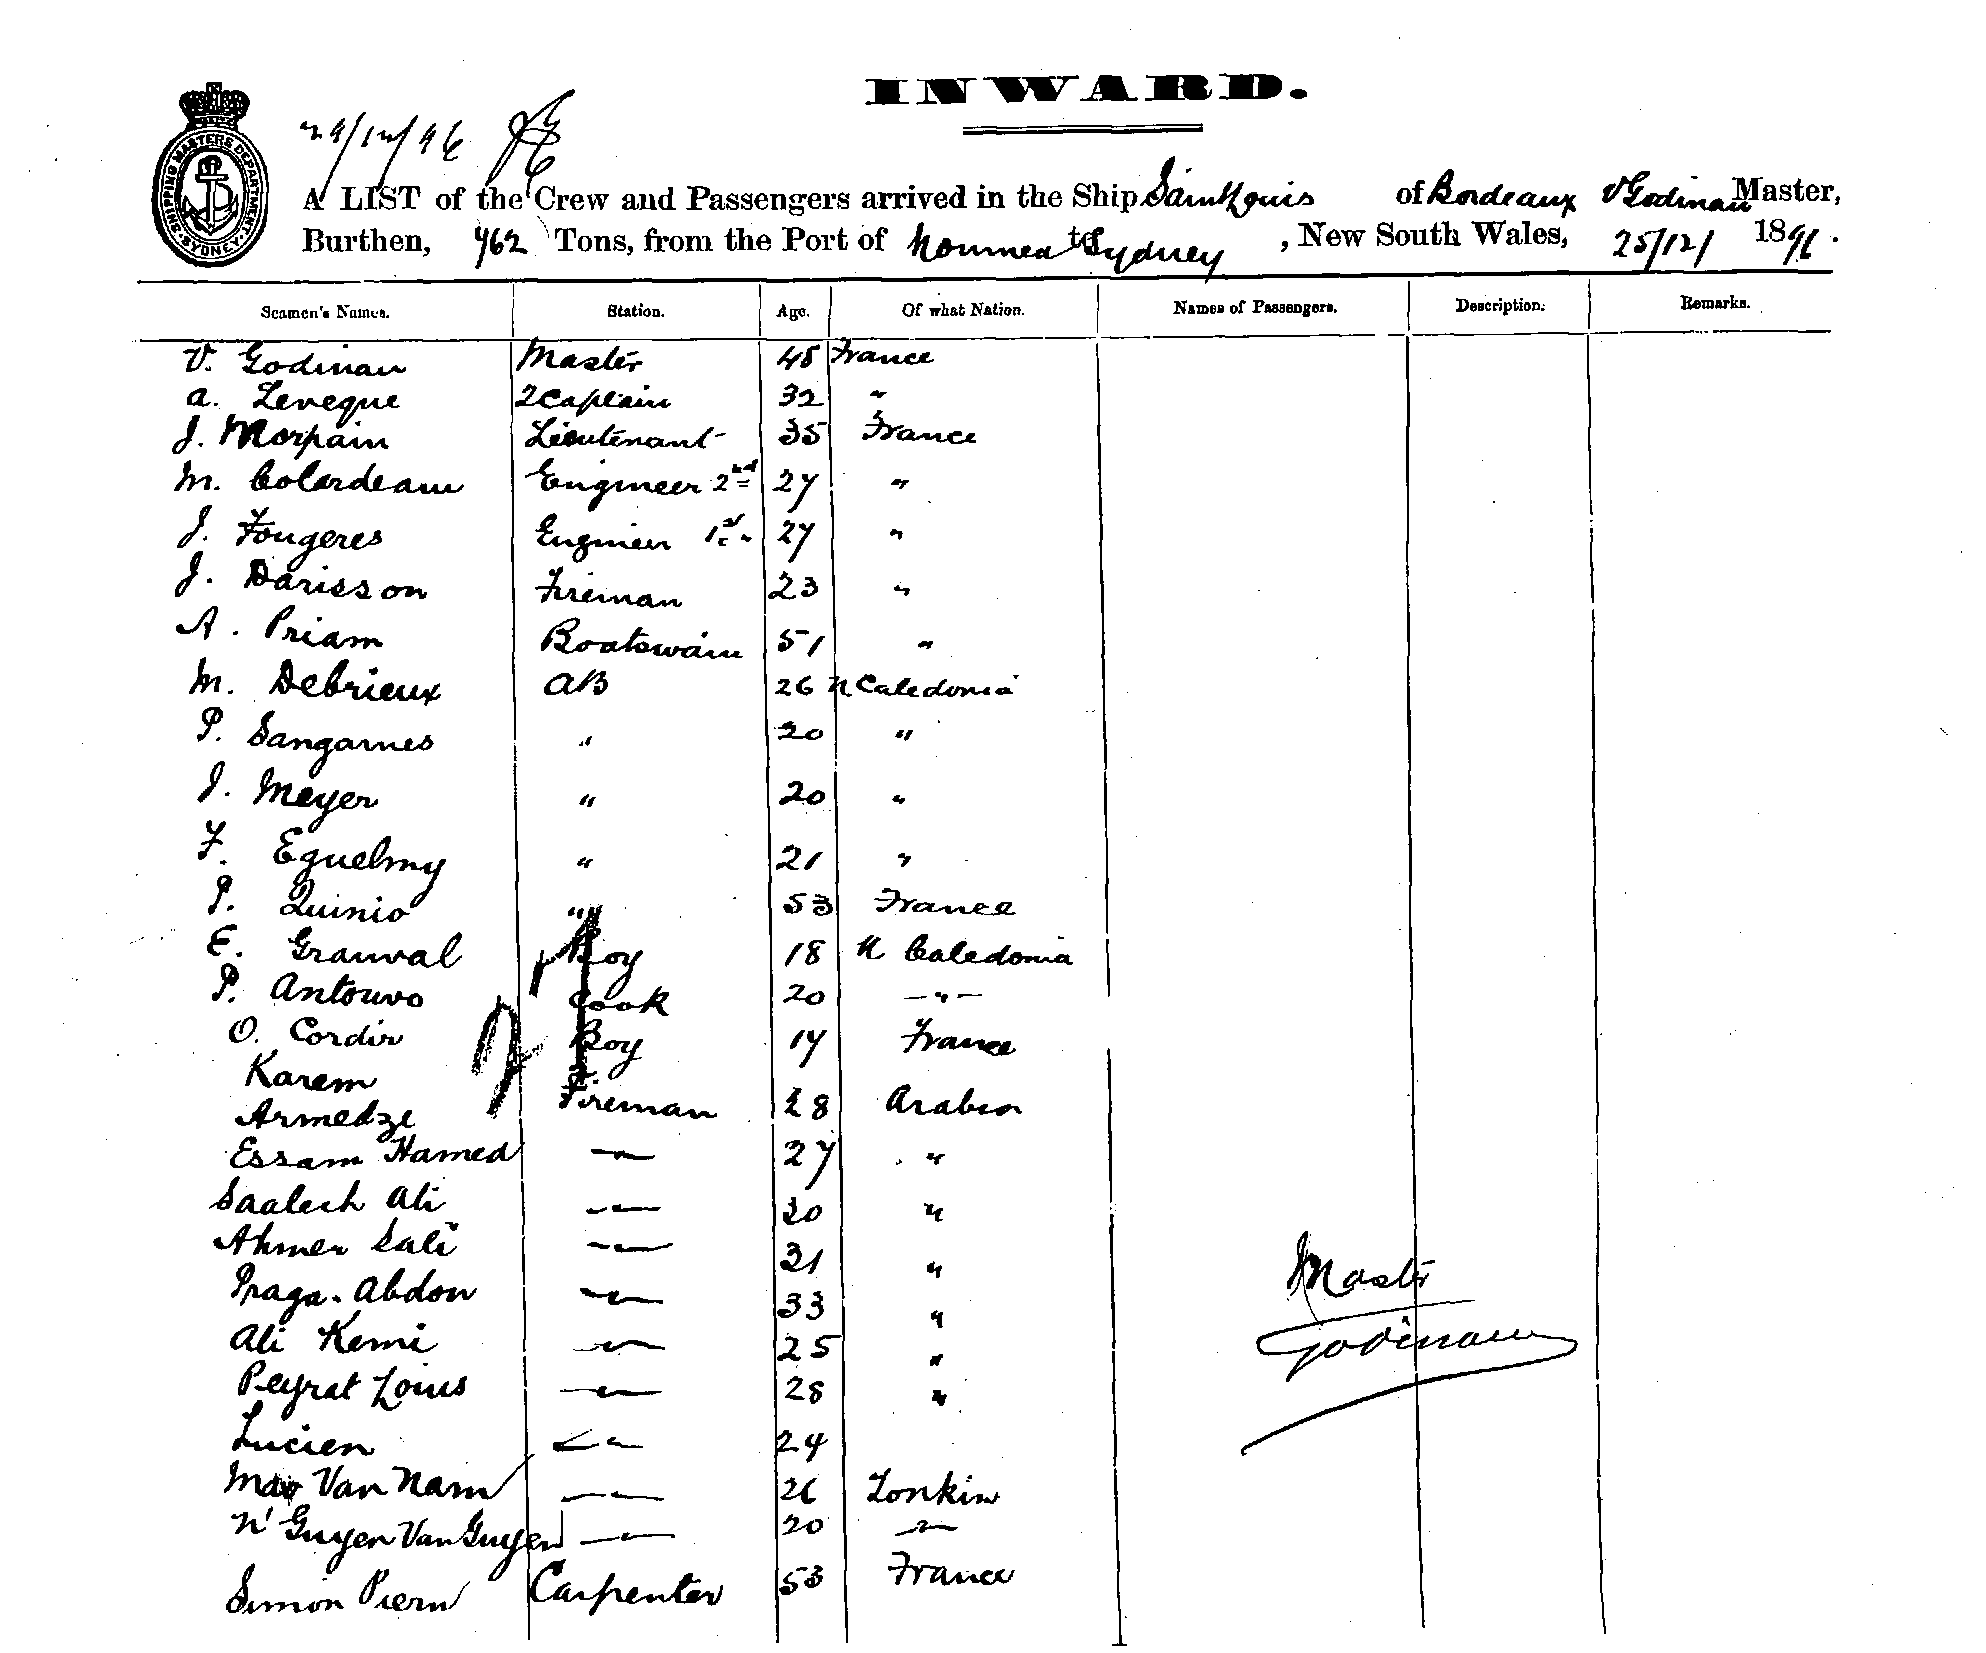 INWARD.
29/12/96
SHIPPING MASTERS DEPARTMENT SYDNEY
A LIST of the Crew and Passengers arrived in the Ship Saint Louis of Bordeaux V Godinau Master,
Burthen, 462 Tons, from the Port of Noumea to Sydney, New South Wales, 25/12/ 1896.
Seamen's Names. Station. Age. Of what Nation. Names of Passengers. Description. Remarks.
V. Godinau Master 48 France
A. Leveque 2 Captain 32 "
J. Morpain Lieutenant 35 France
M. Colardeau Engineer 2nd 27 "
J. Fougeres Engineer 1st 27 "
J. Darisson Fireman 23 "
A. Priam Boatswain 51 "
M. Debrieux AB 26 N Caledonia
P. Sangarnes " 20 "
J. Meyer " 20 "
F. Eguelmy " 21 "
P. Quinio " 53 France
E. Grauval Boy 18 N Caledonia
P. Antouvo Cook 20 "
O. Cordir Boy 17 France
Karem
Armedze Fireman 28 Arabia
Essam Hamed " 27 "
Saalech Ali " 30 "
Ahmer Sali " 31 "
Praga. Abdou " 33 "
Ali Kemi " 25 "
Peyrat Louis " 28 "
Lucien " 24
Van Nam " 26 Tonkin
N'Guyen Van Guyen " 20 "
Simon Piern Carpenter 53 France
Master
Godinau